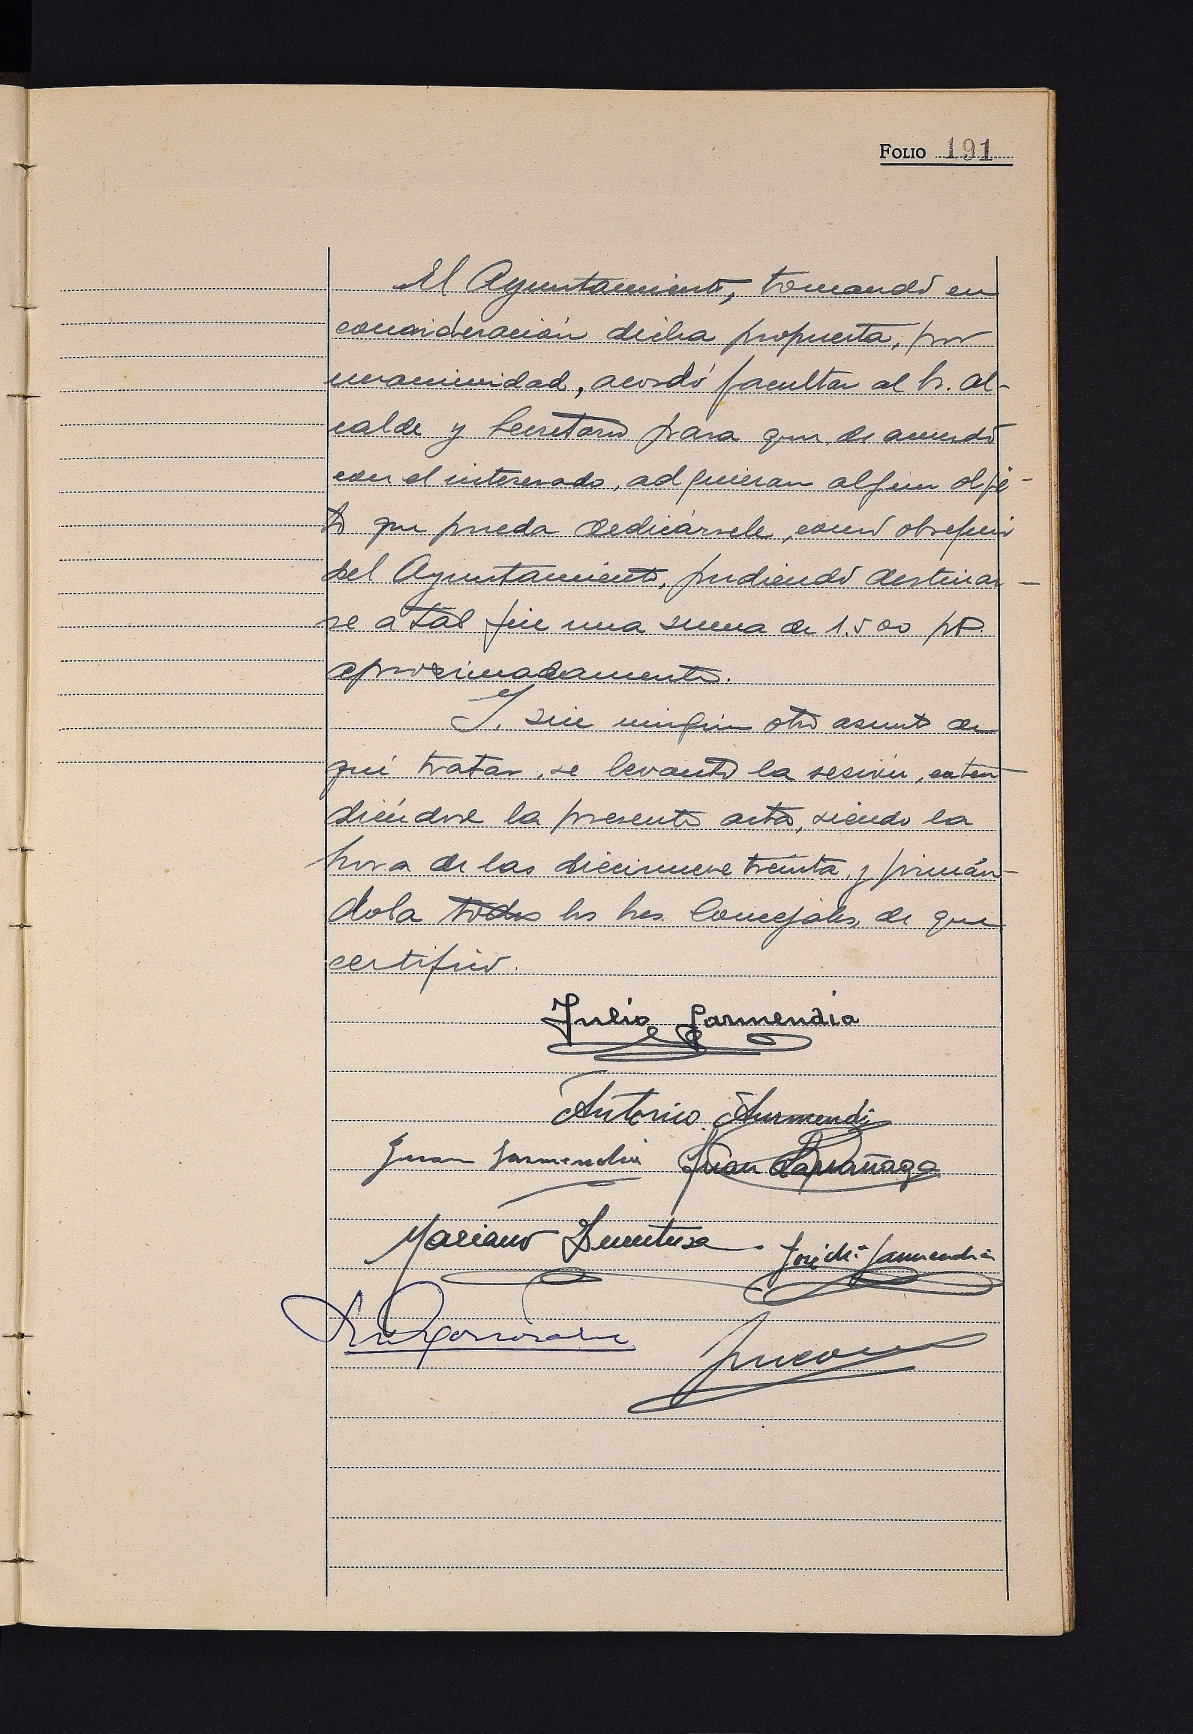 FOLIO 191
El Ayuntamiento, tomando en
consideración dicha propuesta, por
unanimidad, acordó facultar al Sr. Al-
calde y Secretario para que, de acuerdo
con el interesado, adquieran algun obje-
to que pueda dedicársele, como obsequio
del Ayuntamiento, pudiendo destinar-
se a tal fin una suma de 1.500 pts.
aproximadamente.
Y, sin ningún otro asunto de
qué tratar, se levantó la sesión, exten
diéndose la presente acta, siendo la
hora de las diecinueve treinta y firmán-
dola todos los Sres. Concejales, de que
certifico.
Julio Garmendia
Antonio
Juan Garmendia Juan Larrañaga
Mariano José Mª Garmendia